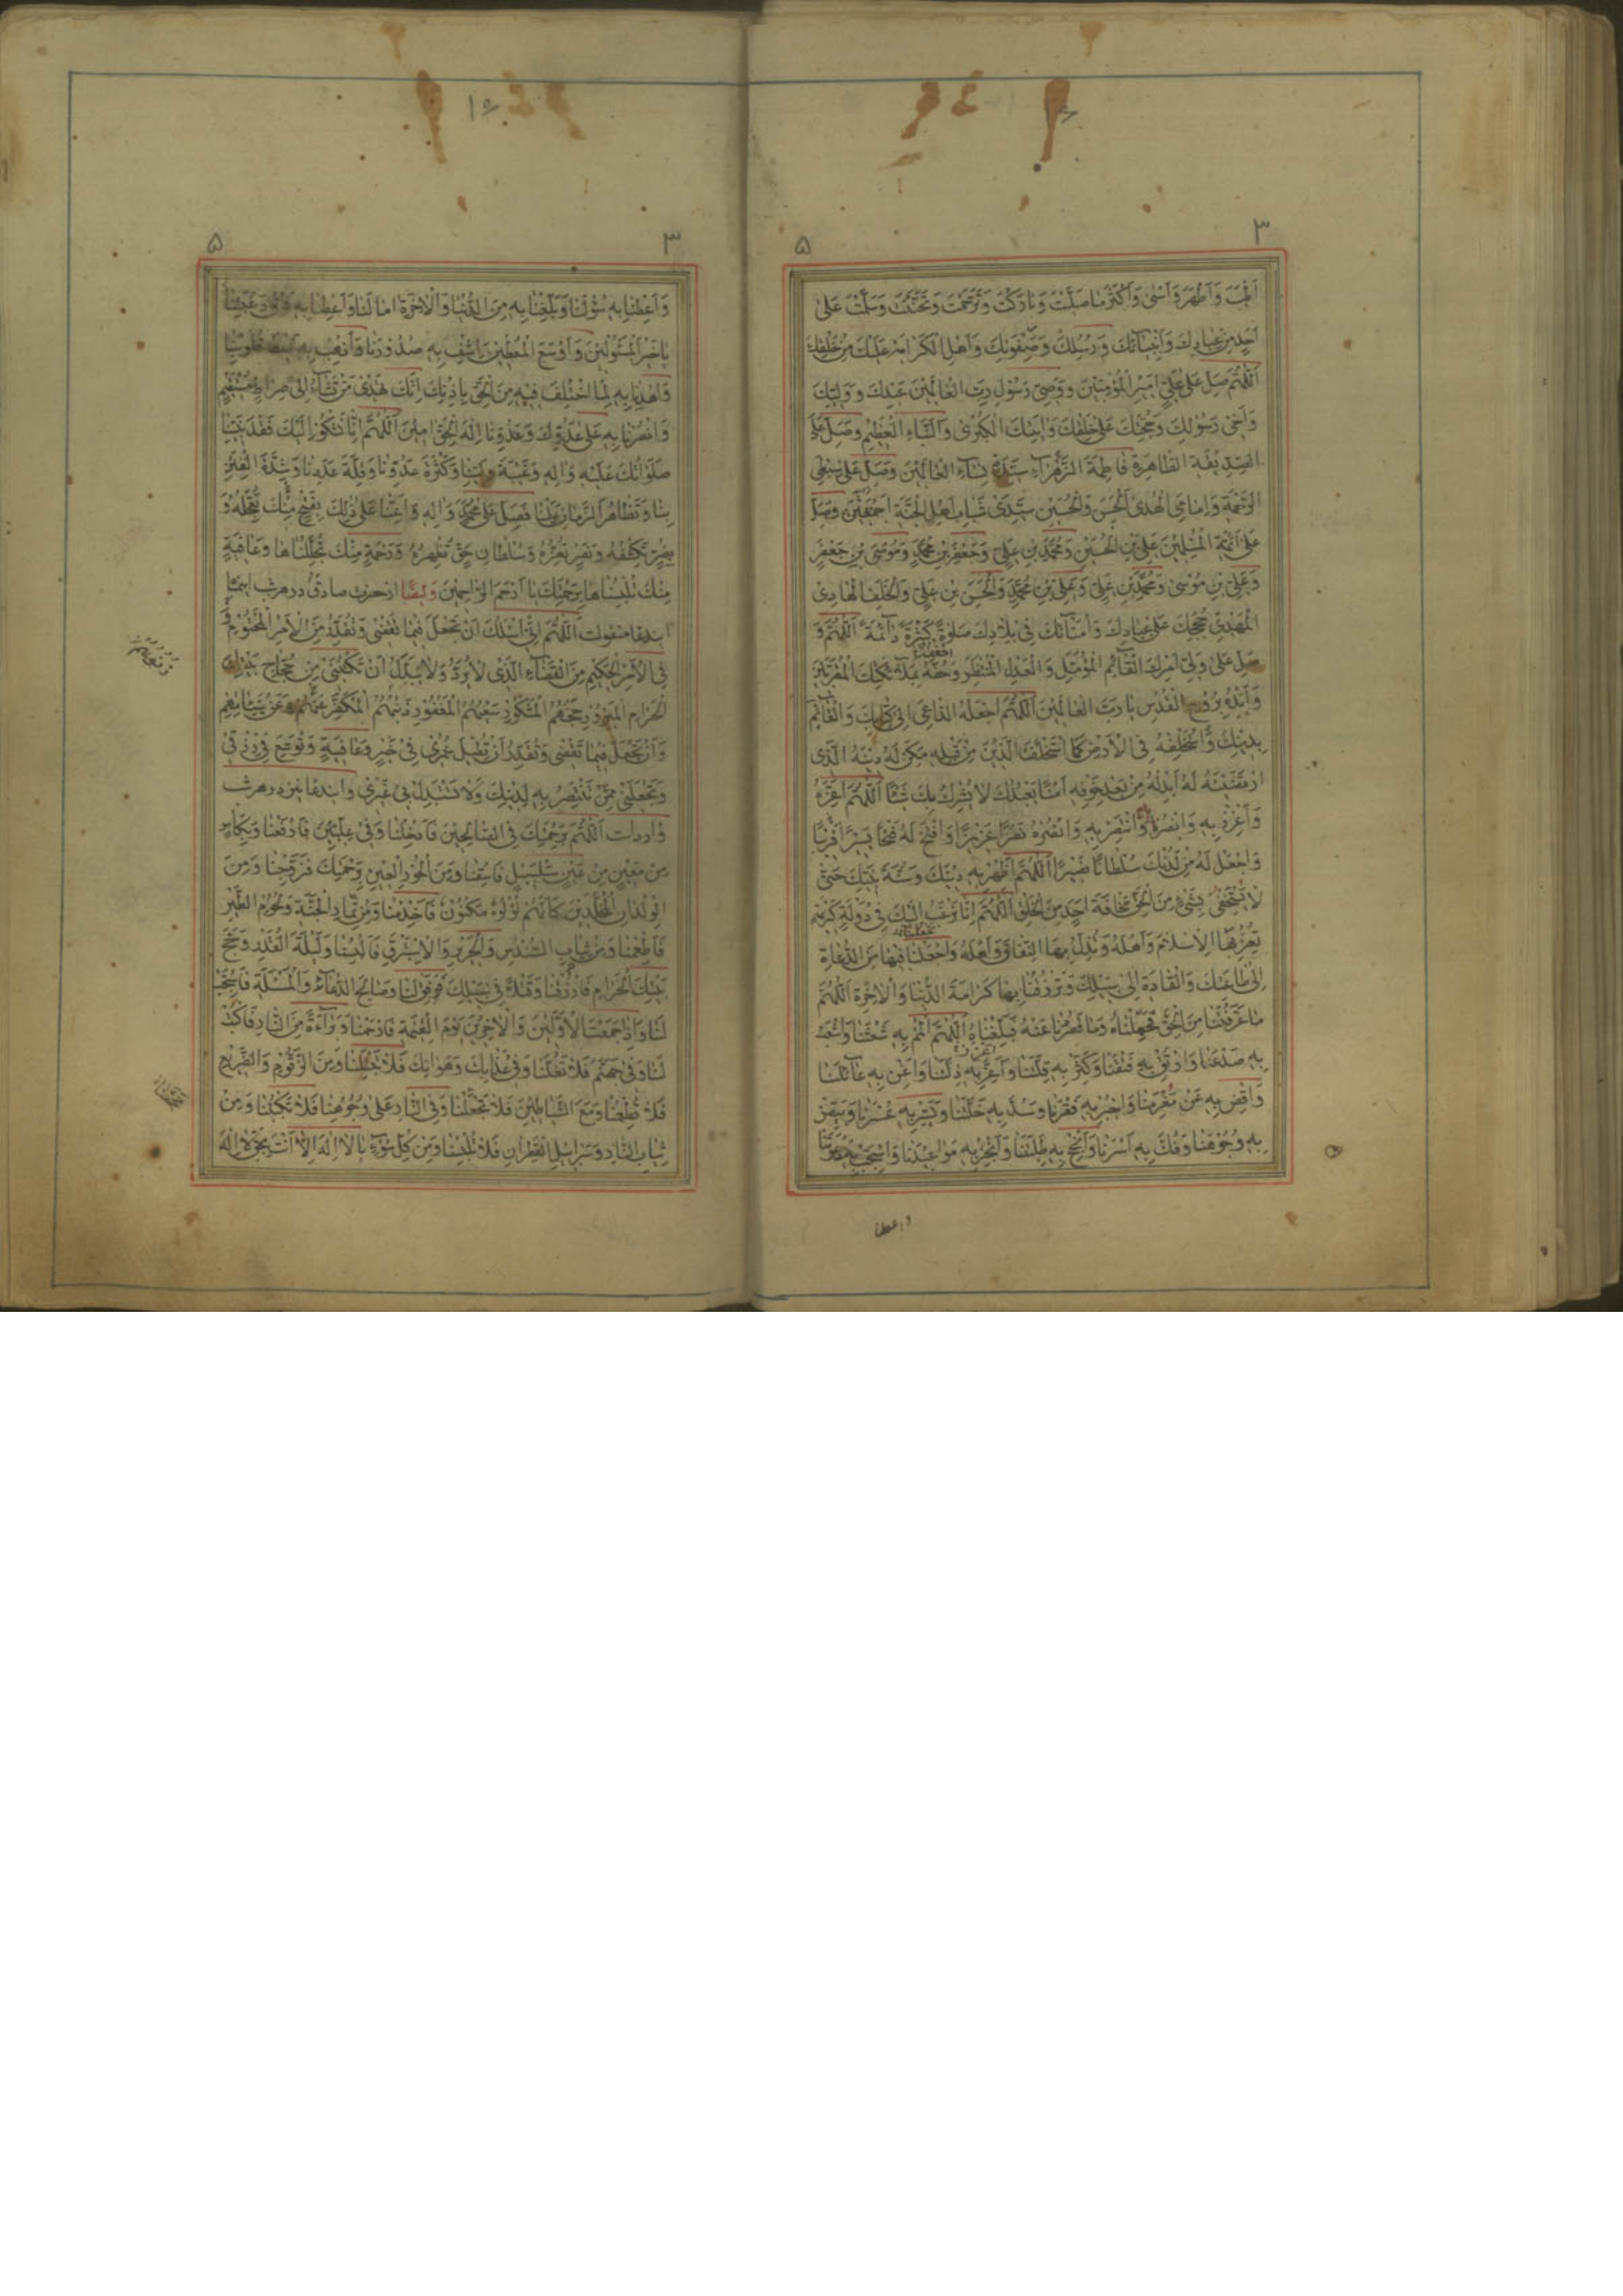 ۳
۵
اَطْيَبَ وَاَطْهَرَ وَاَسْنىٰ وَاَكْثَرَ مٰا صَلَّيْتَ وَبٰارَكْتَ وَتَرَحَّمْتَ وَتَحَنَّنْتَ وَسَلَّمْتَ عَلىٰ
اَحَدٍ مِنْ عِبٰادِكَ وَاَنْبِيٰآئِكَ وَرُسُلِكَ وَصَفْوَتِكَ وَاَهْلِ الْكَرٰامَةِ عَلَيْكَ مِنْ خَلْقِكَ
اَللّٰهُمَّ صَلِّ عَلىٰ عَلِيٍّ اَمٖيرِ الْمُؤْمِنٖينَ وَوَصِيِّ رَسُولِ رَبِّ الْعٰالَمٖينَ عَبْدِكَ وَوَلِيِّكَ
وَاَخٖى رَسُولِكَ وَحُجَّتِكَ عَلىٰ خَلْقِكَ وَاٰيَتِكَ الْكُبْرىٰ وَالنَّبَاءِ الْعَظٖيمِ وَصَلِّ عَلَى
الصِّدّٖيقَةِ الطّٰاهِرَةِ فٰاطِمَةَ الزَّهْرٰآءِ سَيِّدَةِ نِسٰآءِ الْعٰالَمٖينَ وَصَلِّ عَلىٰ سِبْطَيِ
الرَّحْمَةِ وَاِمٰامَيِ الْهُدىٰ اَلْحَسَنِ وَالْحُسَيْنِ سَيِّدَيْ شَبٰابِ اَهْلِ الْجَنَّةِ اَجْمَعٖينَ وَصَلِّ
عَلىٰ اَئِمَّةِ الْمُسْلِمٖينَ عَلِيِّ بْنِ الْحُسَيْنِ وَمُحَمَّدِ بْنِ عَلِيٍّ وَجَعْفَرِ بْنِ مُحَمَّدٍ وَمُوسَى بْنِ جَعْفَرٍ
وَعَلِيِّ بْنِ مُوسىٰ وَمُحَمَّدِ بْنِ عَلِيٍّ وَعَلِيِّ بْنِ مُحَمَّدٍ وَالْحَسَنِ بْنِ عَلِيٍّ وَالْخَلَفِ الْهٰادِى
الْمَهْدِيِّ حُجَجِكَ عَلىٰ عِبٰادِكَ وَاُمَنٰآئِكَ فٖى بِلٰادِكَ صَلٰوةً كَثٖيرَةً دٰآئِمَةً اَللّٰهُمَّ وَ
صَلِّ عَلىٰ وَلِيِّ اَمْرِكَ الْقٰآئِمِ الْمُؤَمَّلِ وَالْعَدْلِ الْمُنْتَظَرِ وَحُفَّهُ بِمَلٰٓئِكَتِكَ الْمُقَرَّبٖينَ
وَاَيِّدْهُ بِرُوحِ الْقُدُسِ يٰا رَبَّ الْعٰالَمٖينَ اَللّٰهُمَّ اجْعَلْهُ الدّٰاعِيَ اِلىٰ كِتٰابِكَ وَالْقٰآئِمَ
بِدٖينِكَ وَاسْتَخْلِفْهُ فِى الْاَرْضِ كَمَا اسْتَخْلَفْتَ الَّذٖينَ مِنْ قَبْلِهٖ مَكِّنْ لَهُ دٖينَهُ الَّذٖى
ارْتَضَيْتَهُ لَهُ اَبْدِلْهُ مِنْ بَعْدِ خَوْفِهٖ اَمْنًا يَعْبُدُكَ لٰا يُشْرِكُ بِكَ شَيْئًا اَللّٰهُمَّ اَعِزَّهُ
وَاَعْزِزْ بِهٖ وَانْصُرْهُ وَانْتَصِرْ بِهٖ وَانْصُرْهُ نَصْرًا عَزٖيزًا وَافْتَحْ لَهُ فَتْحًا يَسٖيرًا
وَاجْعَلْ لَهُ مِنْ لَدُنْكَ سُلْطٰانًا نَصٖيرًا اَللّٰهُمَّ اَظْهِرْ بِهٖ دٖينَكَ وَسُنَّةَ نَبِيِّكَ حَتّىٰ
لٰا يَسْتَخْفِىَ بِشَيْءٍ مِنَ الْحَقِّ مَخٰافَةَ اَحَدٍ مِنَ الْخَلْقِ اَللّٰهُمَّ اِنّٰا نَرْغَبُ اِلَيْكَ فٖى دَوْلَةٍ كَرٖيمَةٍ
تُعِزُّ بِهَا الْاِسْلٰامَ وَاَهْلَهُ وَتُذِلُّ بِهَا النِّفٰاقَ وَاَهْلَهُ وَاجْعَلْنٰا فٖيهٰا مِنَ الدُّعٰاةِ
اِلىٰ طٰاعَتِكَ وَالْقٰادَةِ اِلىٰ سَبٖيلِكَ وَتَرْزُقُنٰا بِهٰا كَرٰامَةَ الدُّنْيٰا وَالْاٰخِرَةِ اَللّٰهُمَّ
مٰا عَرَّفْتَنٰا مِنَ الْحَقِّ فَحَمِّلْنٰاهُ وَمٰا قَصُرْنٰا عَنْهُ فَبَلِّغْنٰاهُ اَللّٰهُمَّ الْمُمْ بِهٖ شَعَثَنٰا وَاشْعَبْ
بِهٖ صَدْعَنٰا وَارْتُقْ بِهٖ فَتْقَنٰا وَكَثِّرْ بِهٖ قِلَّتَنٰا وَاَعِزَّ بِهٖ ذِلَّتَنٰا وَاَغْنِ بِهٖ عٰآئِلَنٰا
وَاقْضِ بِهٖ عَنْ مُغْرَمِنٰا وَاجْبُرْ بِهٖ فَقْرَنٰا وَسُدَّ بِهٖ خَلَّتَنٰا وَيَسِّرْ بِهٖ عُسْرَنٰا وَبَيِّضْ
بِهٖ وُجُوهَنٰا وَفُكَّ بِهٖ اَسْرَنٰا وَاَنْجِحْ بِهٖ طَلِبَتَنٰا وَاَنْجِزْ بِهٖ مَوٰاعٖيدَنٰا وَاسْتَجِبْ بِهٖ دَعْوَتَنٰا
واعطنا
۱۶
۳
۵
وَاَعْطِنٰا بِهٖ سُؤْلَنٰا وَبَلِّغْنٰا بِهٖ مِنَ الدُّنْيٰا وَالْاٰخِرَةِ اٰمٰالَنٰا وَاَعْطِنٰا بِهٖ فَوْقَ رَغْبَتِنٰا
يٰا خَيْرَ الْمَسْئُولٖينَ وَاَوْسَعَ الْمُعْطٖينَ اِشْفِ بِهٖ صُدُورَنٰا وَاَذْهِبْ بِهٖ غَيْظَ قُلُوبِنٰا
وَاهْدِنٰا بِهٖ لِمَا اخْتُلِفَ فٖيهِ مِنَ الْحَقِّ بِاِذْنِكَ اِنَّكَ تَهْدٖى مَنْ تَشٰآءُ اِلىٰ صِرٰاطٍ مُسْتَقٖيمٍ
وَانْصُرْنٰا بِهٖ عَلىٰ عَدُوِّكَ وَعَدُوِّنٰا اِلٰهَ الْحَقِّ اٰمٖينَ اَللّٰهُمَّ اِنّٰا نَشْكُوا اِلَيْكَ فَقْدَ نَبِيِّنٰا
صَلَوٰاتُكَ عَلَيْهِ وَاٰلِهٖ وَغَيْبَةَ وَلِيِّنٰا وَكَثْرَةَ عَدُوِّنٰا وَقِلَّةَ عَدَدِنٰا وَشِدَّةَ الْفِتَنِ
بِنٰا وَتَظٰاهُرَ الزَّمٰانِ عَلَيْنٰا فَصَلِّ عَلىٰ مُحَمَّدٍ وَاٰلِهٖ وَاَعِنّٰا عَلىٰ ذٰلِكَ بِفَتْحٍ مِنْكَ تُعَجِّلُهُ وَ
بِضُرٍّ تَكْشِفُهُ وَنَصْرٍ تُعِزُّهُ وَسُلْطٰانِ حَقٍّ تُظْهِرُهُ وَرَحْمَةٍ مِنْكَ تُجَلِّلُنٰاهٰا وَعٰافِيَةٍ
مِنْكَ تُلْبِسُنٰاهٰا بِرَحْمَتِكَ يٰا اَرْحَمَ الرّٰاحِمٖينَ وَايضًا از حضرت صادق در هر شب
ايندعا منقولست اَللّٰهُمَّ اِنّٖى اَسْئَلُكَ اَنْ تَجْعَلَ فٖيمٰا تَقْضٖى وَتُقَدِّرُ مِنَ الْاَمْرِ الْمَحْتُومِ
فِى الْاَمْرِ الْحَكٖيمِ مِنَ الْقَضٰآءِ الَّذٖى لٰا يُرَدُّ وَلٰا يُبَدَّلُ اَنْ تَكْتُبَنٖى مِنْ حُجّٰاجِ بَيْتِكَ
الْحَرٰامِ الْمَبْرُورِ حَجُّهُمُ الْمَشْكُورِ سَعْيُهُمُ الْمَغْفُورِ ذُنُوبُهُمُ الْمُكَفَّرِ عَنْهُمْ عَنْ سَيِّئٰاتِهِمْ
وَاَنْ تَجْعَلَ فٖيمٰا تَقْضٖى وَتُقَدِّرُ اَنْ تُطٖيلَ عُمْرٖى فٖى خَيْرٍ وَعٰافِيَةٍ وَتُوَسِّعَ فٖى رِزْقٖى
وَتَجْعَلَنٖى مِمَّنْ تَنْتَصِرُ بِهٖ لِدٖينِكَ وَلٰا تَسْتَبْدِلْ بٖى غَيْرٖى وايندعا نيز در هر شب
وارداست اَللّٰهُمَّ بِرَحْمَتِكَ فِى الصّٰالِحٖينَ فَاَدْخِلْنٰا وَفٖى عِلِّيّٖينَ فَارْفَعْنٰا وَبِكَأْسٍ
مِنْ مَعٖينٍ مِنْ عَيْنٍ سَلْسَبٖيلٍ فَاسْقِنٰا وَمِنَ الْحُورِ الْعٖينِ بِرَحْمَتِكَ فَزَوِّجْنٰا وَمِنَ
الْوِلْدٰانِ الْمُخَلَّدٖينَ كَاَنَّهُمْ لُؤْلُؤٌ مَكْنُونٌ فَاَخْدِمْنٰا وَمِنْ ثِمٰارِ الْجَنَّةِ وَلُحُومِ الطَّيْرِ
فَاَطْعِمْنٰا وَمِنْ ثِيٰابِ السُّنْدُسِ وَالْحَرٖيرِ وَالْاِسْتَبْرَقِ فَاَلْبِسْنٰا وَلَيْلَةَ الْقَدْرِ وَحَجَّ
بَيْتِكَ الْحَرٰامِ فَارْزُقْنٰا وَقَتْلًا فٖى سَبٖيلِكَ فَوَفِّقْ لَنٰا وَصٰالِحَ الدُّعٰآءِ وَالْمَسْئَلَةِ فَاسْتَجِبْ
لَنٰا وَاِذٰا جَمَعْتَ الْاَوَّلٖينَ وَالْاٰخِرٖينَ يَوْمَ الْقِيٰمَةِ فَارْحَمْنٰا وَبَرٰآءَةً مِنَ النّٰارِ فَاكْتُبْ
لَنٰا وَفٖى جَهَنَّمَ فَلٰا تَغُلَّنٰا وَفٖى عَذٰابِكَ وَهَوٰانِكَ فَلٰا تَبْتَلِنٰا وَمِنَ الزَّقُّومِ وَالضَّرٖيعِ
فَلٰا تُطْعِمْنٰا وَمَعَ الشَّيٰاطٖينِ فَلٰا تَجْعَلْنٰا وَفِى النّٰارِ عَلىٰ وُجُوهِنٰا فَلٰا تَكْبُبْنٰا وَمِنْ
ثِيٰابِ النّٰارِ وَسَرٰابٖيلِ الْقَطِرٰانِ فَلٰا تُلْبِسْنٰا وَمِنْ كُلِّ سُوٓءٍ يٰا لٰا اِلٰهَ اِلّٰا اَنْتَ بِحَقِّ لٰا اِلٰهَ